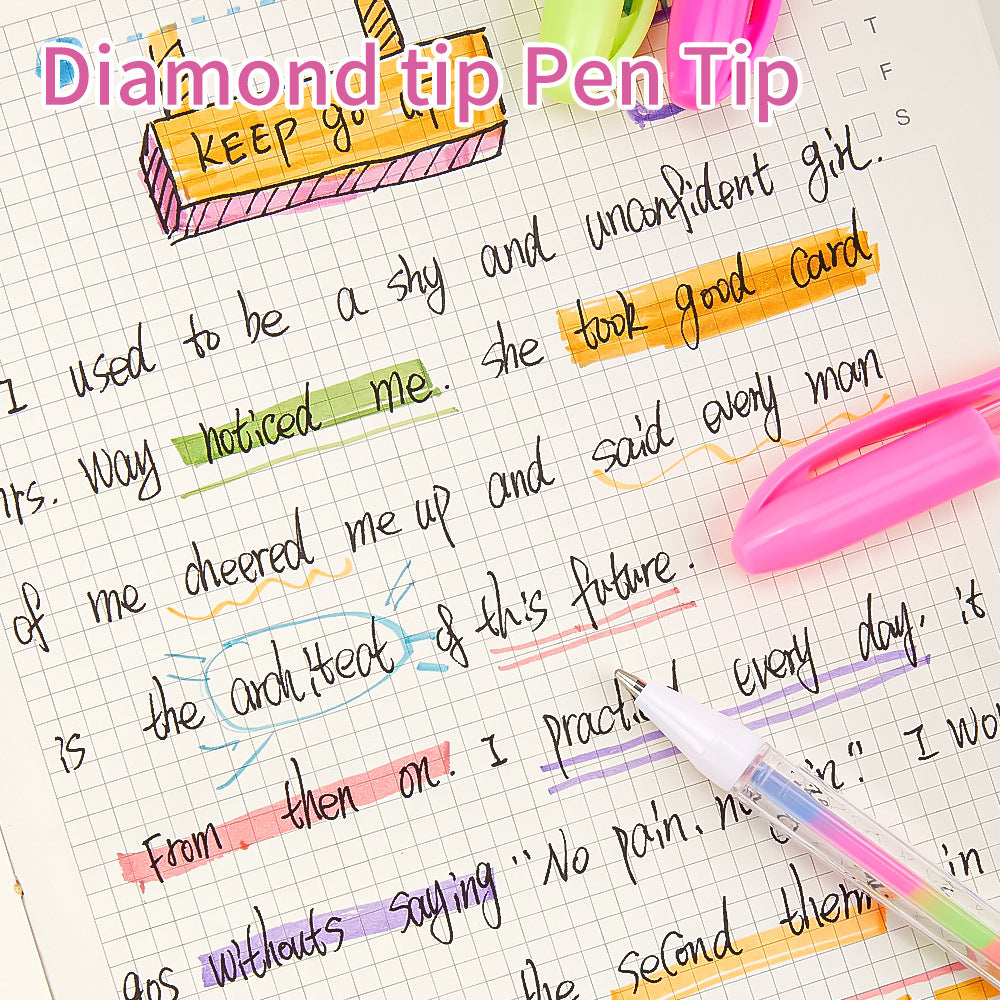 Diamond tip Pen Tip
KEEP go up
T
F
S
I used to be a shy and unconfident girl.
Mrs. Way noticed me. she took good card
of me cheered me up and said every man
is the architect of this future.
From then on. I every day. it
gos withouts saying "No pain. I wo
the second them in